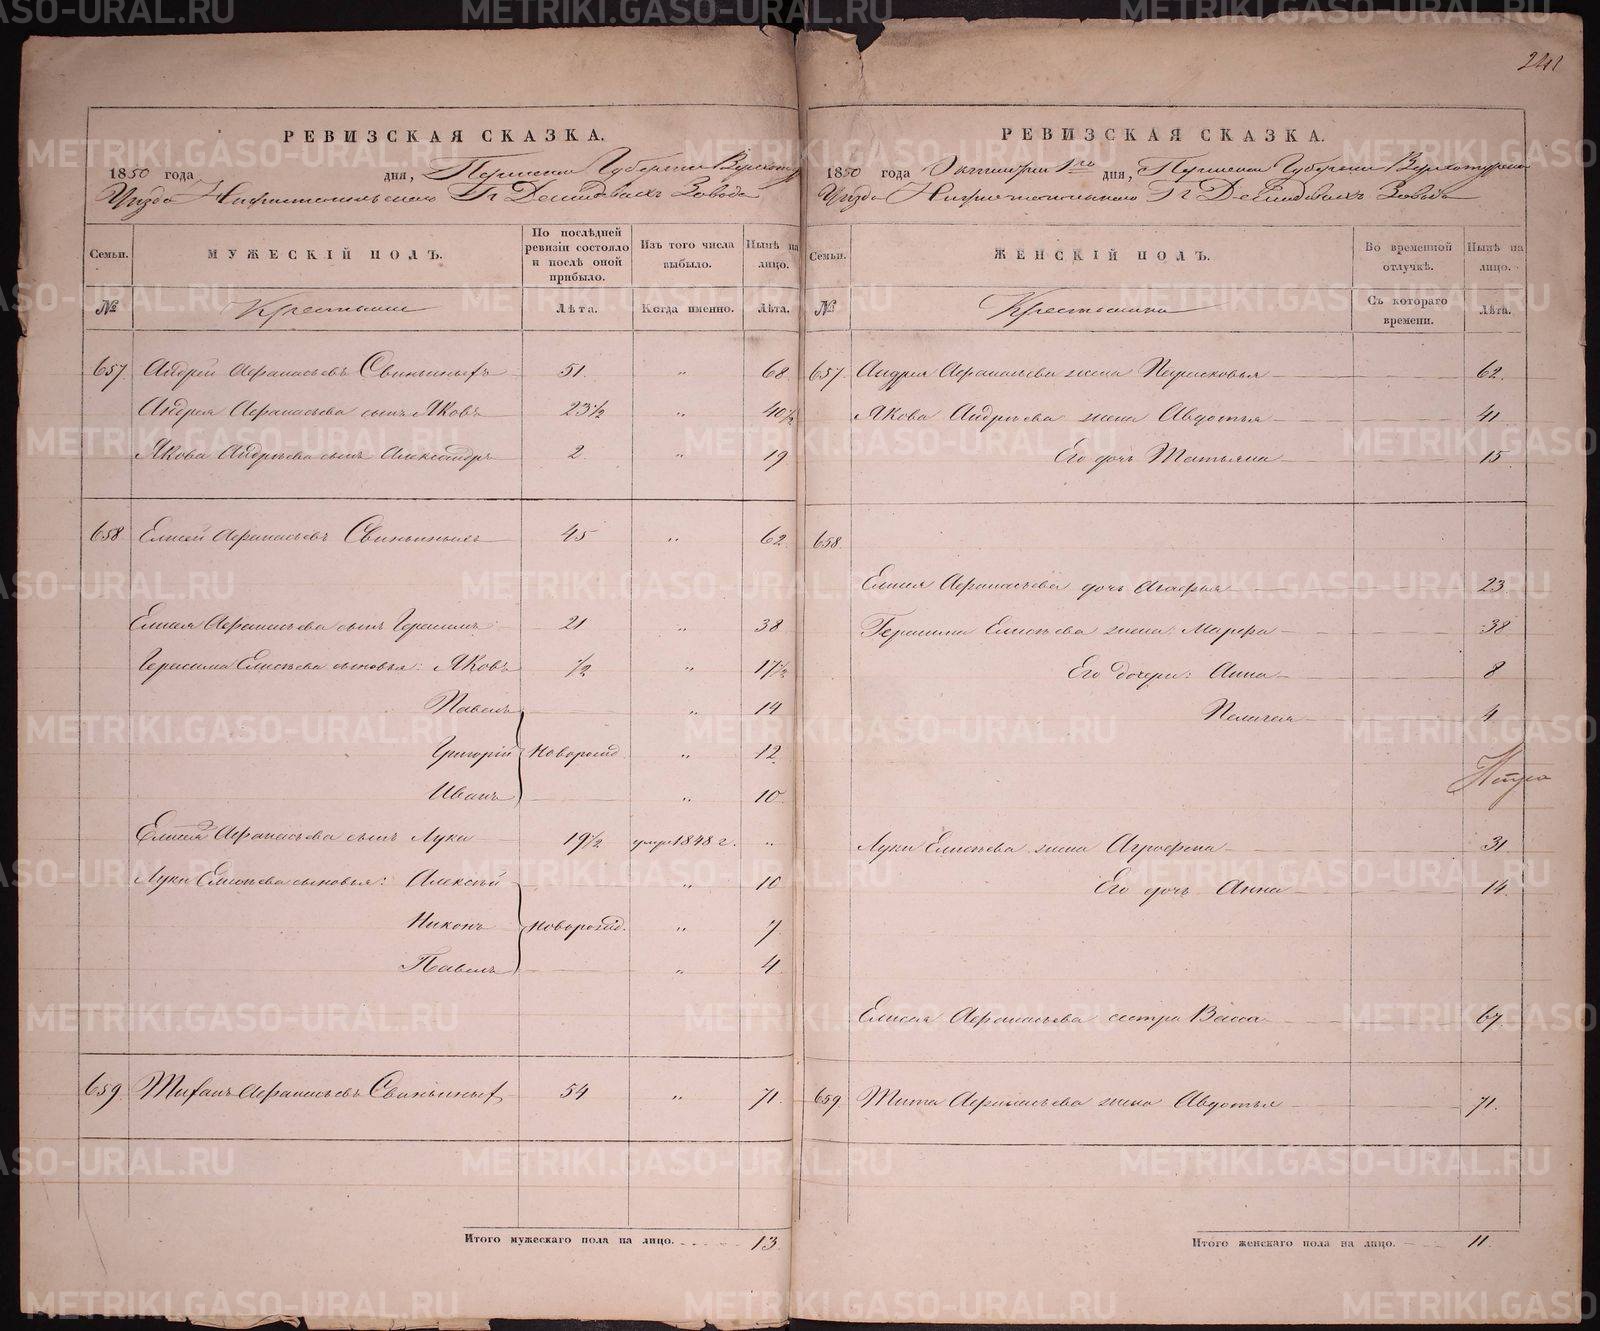 241
РЕВИЗСКАЯ СКАЗКА.
1850 года дня, Пермской Губернии Верхотур
Уезда Нижнетагильскаго Гг Демидовыхъ Завода
Семьи. МУЖЕСКІЙ ПОЛЪ. По послѣдней ревизіи состояло и послѣ оной прибыло. Изъ того числа выбыло. Нынѣ на лицо.
№ Крестьяне Лѣта. Когда именно. Лѣта.
657. Андрей Афанасьевъ Свиньиныхъ 51. " 68.
Андрея Афанасьева сынъ Яковъ 23½ " 40½
Якова Андреева сынъ Александръ 2. " 19
658 Елисей Афанасьевъ Свиньиныхъ 45 " 62.
Елисея Афанасьева сынъ Герасимъ 21 " 38
Герасима Елисеева сыновья: Яковъ ½ " 17½
Павелъ " 14
Григорій новорожд. " 12.
Иванъ " 10
Елисея Афанасьева сынъ Лука 19½ умре 1848 г. "
Луки Елисеева сыновья: Алексѣй " 10
Никонъ новорожд. " 7
Павелъ " 4
659 Титъ Афанасьевъ Свиньиныхъ 54 " 71.
Итого мужескаго пола на лицо. 13.
РЕВИЗСКАЯ СКАЗКА.
1850 года Октября 1го дня, Пермской Губернии Верхотурскаго
Уезда Нижнетагильскаго Гг Демидовыхъ Завода
Семьи. ЖЕНСКІЙ ПОЛЪ. Во временной отлучкѣ. Нынѣ на лицо.
№ Крестьянки Съ котораго времени. Лѣта.
657. Андрея Афанасьева жена Парасковья 62.
Якова Андреева жена Авдотья 41
Его дочь Татьяна 15
658.
Елисея Афанасьева дочь Агафья 23.
Герасима Елисеева жена Марфа 38
Его дочери: Анна 8
Пелагея 4
Луки Елисеева жена Аграфена 31
Его дочь Анна 14.
Елисея Афанасьева сестра Васса 67
659 Тита Афанасьева жена Авдотья 71.
Итого женскаго пола на лицо. 11.
METRIKI.GASO-URAL.RU